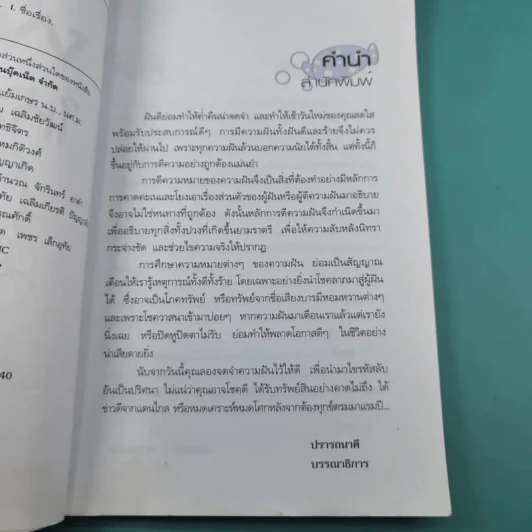 1. ชื่อเรื่อง.
ส่วนหนึ่งส่วนใดของหนังสือ
จำกัด
แย้มเกษร น.บ., นศ.ม.
เฉลิมชัยวัฒน์
จักรินทร์
เฉลิมเกียรติ
เพชร เล็กอุทัย
40
คำนำ
สำนักพิมพ์
ฝันดีย่อมทำให้ค่ำคืนน่าจดจำ และทำให้เช้าวันใหม่ของคุณสดใส
พร้อมรับประสบการณ์ดีๆ การมีความฝันทั้งฝันดีและร้ายจึงไม่ควร
ปล่อยให้ผ่านไป เพราะทุกความฝันล้วนบอกความนัยได้ทั้งสิ้น แต่ทั้งนี้ก็
ขึ้นอยู่กับการตีความอย่างถูกต้องแม่นยำ
การตีความหมายของความฝันจึงเป็นสิ่งที่ต้องทำอย่างมีหลักการ
การคาดคะเนและโยงเอาเรื่องส่วนตัวของผู้ฝันหรือผู้ตีความฝันมาอธิบาย
จึงอาจไม่ใช่หนทางที่ถูกต้อง ดังนั้นหลักการตีความฝันจึงกำเนิดขึ้นมา
เพื่ออธิบายทุกสิ่งทั้งปวงที่เกิดขึ้นยามราตรี เพื่อให้ความลับหลังนิทรา
กระจ่างชัด และช่วยไขความจริงให้ปรากฏ
การศึกษาความหมายต่างๆ ของความฝัน ย่อมเป็นสัญญาณ
เตือนให้เรารู้เหตุการณ์ทั้งดีทั้งร้าย โดยเฉพาะอย่างยิ่งนำโชคลาภมาสู่ผู้ฝัน
ได้ ซึ่งอาจเป็นโภคทรัพย์ หรือทรัพย์จากชื่อเสียงบารมีหอมหวานต่างๆ
และเพราะโชควาสนาเข้ามาบ่อยๆ หากความฝันมาเตือนเราแล้วแต่เรายัง
นิ่งเฉย หรือปิดหูปิดตาไม่รับ ย่อมทำให้พลาดโอกาสดีๆ ในชีวิตอย่าง
น่าเสียดายยิ่ง
นับจากวันนี้คุณลองจดจำความฝันไว้ให้ดี เพื่อนำมาไขรหัสลับ
อันเป็นปริศนา ไม่แน่ว่าคุณอาจโชคดี ได้รับทรัพย์สินอย่างคาดไม่ถึง ได้
ข่าวดีจากแดนไกล หรือหมดเคราะห์หมดโศกหลังจากต้องทุกข์ตรมมาแรมปี...
ปรารถนาดี
บรรณาธิการ